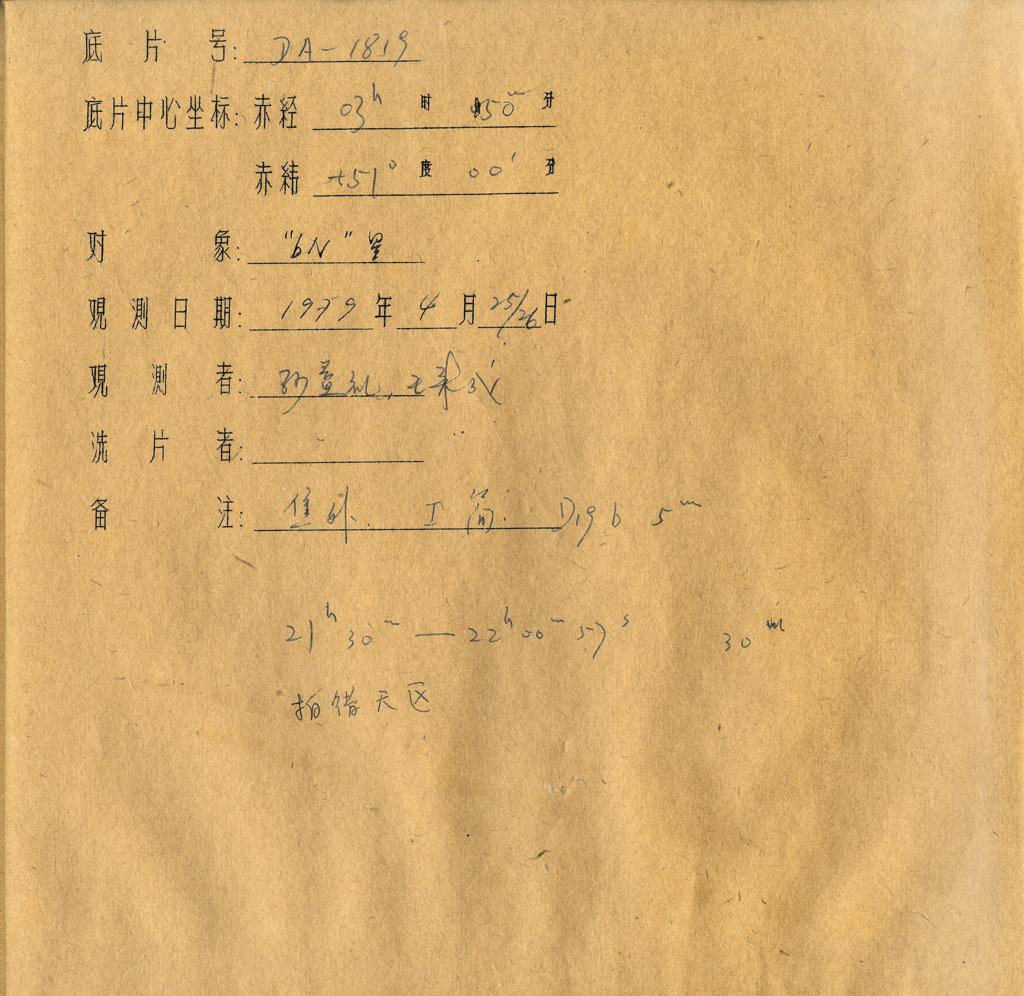 底片号: DA-1819
底片中心坐标: 赤经 03ʰ 时 50ᵐ 分
赤纬 +51° 度 00′ 分
对象: "bN"星
观测日期: 1979年4月25/26日
观测者:
洗片者:
备注: 焦外. I 简. D19b 5ᵐ
21ʰ30ᵐ — 22ʰ00ᵐ57ˢ 30ᵐ
拍错天区